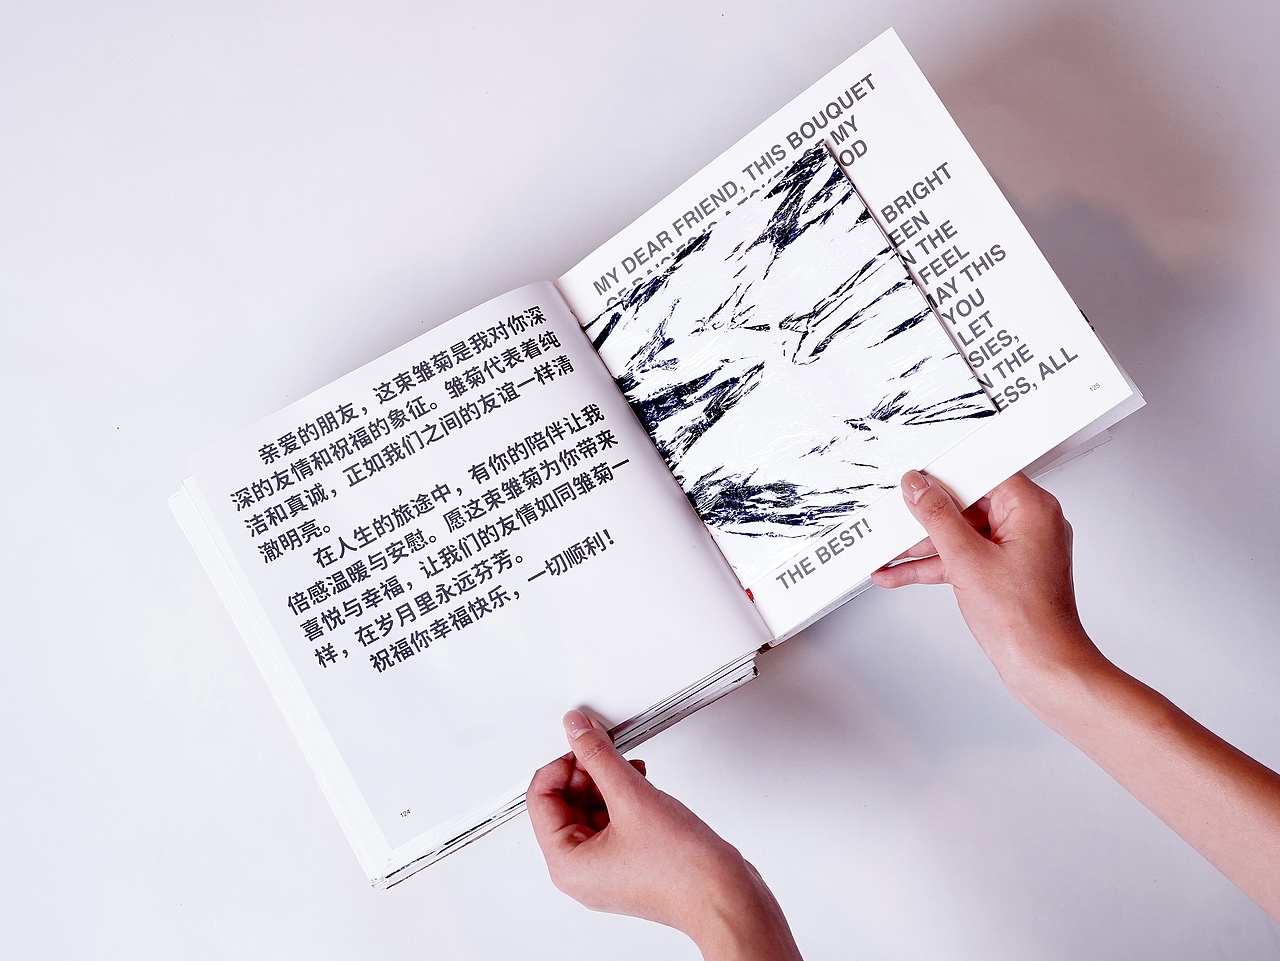 亲爱的朋友，这束雏菊是我对你深
深的友情和祝福的象征。雏菊代表着纯
洁和真诚，正如我们之间的友谊一样清
澈明亮。
在人生的旅途中，有你的陪伴让我
倍感温暖与安慰。愿这束雏菊为你带来
喜悦与幸福，让我们的友情如同雏菊一
样，在岁月里永远芬芳。
祝福你幸福快乐，一切顺利！
124
MY DEAR FRIEND, THIS BOUQUET
MY
OD
BRIGHT
EEN
N THE
FEEL
AY THIS
YOU
LET
SIES,
N THE
ESS, ALL
THE BEST!
125